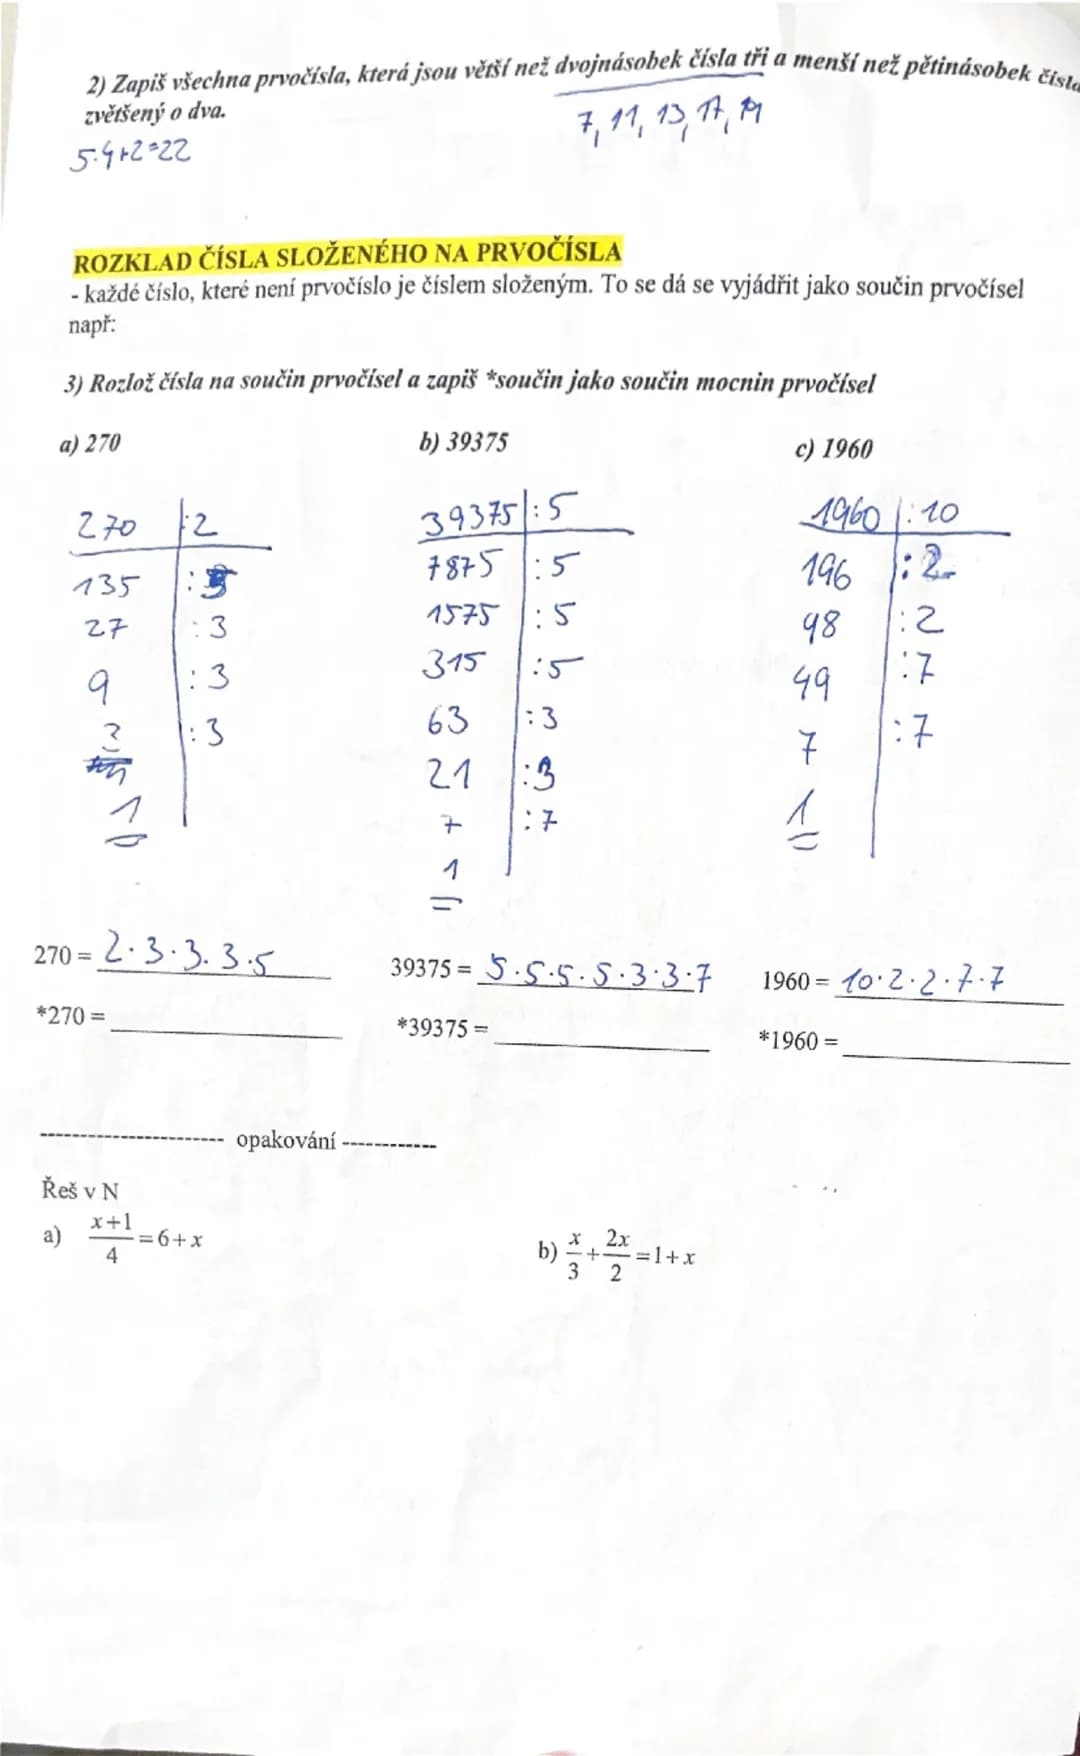 2) Zapiš všechna prvočísla, která jsou větší než dvojnásobek čísla tři a menší než pětinásobek čísla
zvětšený o dva.
7, 11, 13, 17, 19
5·4+2=22
ROZKLAD ČÍSLA SLOŽENÉHO NA PRVOČÍSLA
- každé číslo, které není prvočíslo je číslem složeným. To se dá se vyjádřit jako součin prvočísel
např:
3) Rozlož čísla na součin prvočísel a zapiš *součin jako součin mocnin prvočísel
a) 270 b) 39375 c) 1960
270 :2 39375 :5 1960 :10
135 :5 7875 :5 196 :2
27 :3 1575 :5 98 :2
9 :3 315 :5 49 :7
3 :3 63 :3 7 :7
1 21 :3 1
7 :7
1
270 = 2·3·3·3·5 39375 = 5·5·5·5·3·3·7 1960 = 10·2·2·7·7
*270 = *39375 = *1960 =
----------------------- opakování ------------
Řeš v N
a) x+1/4 = 6+x b) x/3 + 2x/2 = 1+x